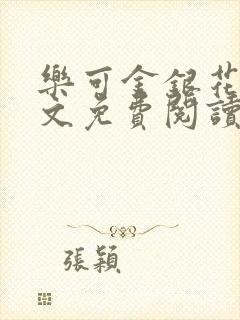 樂可金銀花
文免費閱讀
張穎